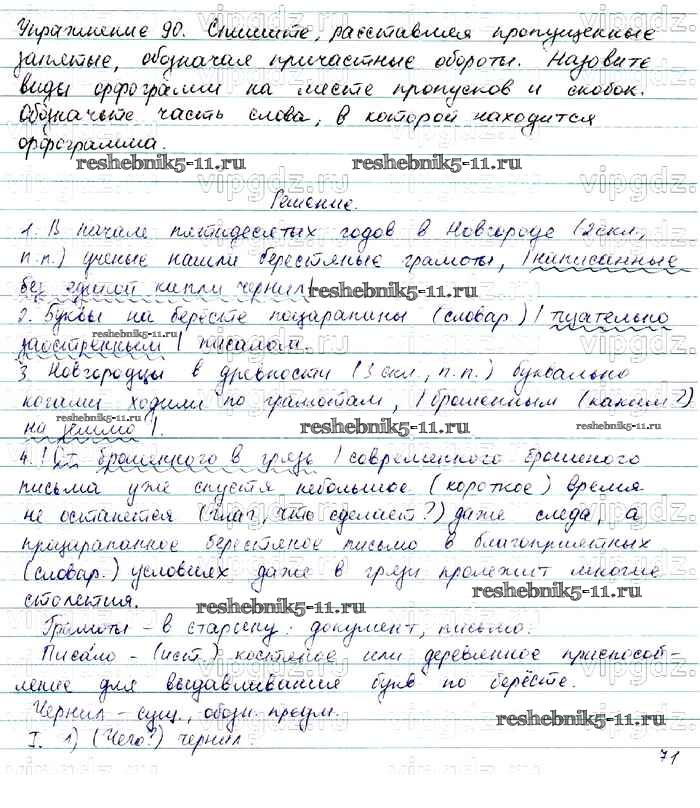 Упражнение 90. Спишите, расставляя пропущенные
запятые, обозначая причастные обороты. Назовите
виды орфограмм на месте пропусков и скобок.
Обозначьте часть слова, в которой находится
орфограмма.
reshebnik5-11.ru reshebnik5-11.ru
Решение.
1. В начале пятидесятых годов в Новгороде (2скл,
п.п.) ученые нашли берестяные грамоты, |написанные
без единой капли чернил|
reshebnik5-11.ru
2. Буквы на бересте поцарапаны (словар.) | тщательно
reshebnik5-11.ru
заостренным | писалом.
3. Новгородцы в древности (3 скл., п.п.) буквально
ногами ходили по грамотам, | брошенным (каким?)
reshebnik5-11.ru reshebnik5-11.ru reshebnik5-11.ru
на землю |.
4. | От брошенного в грязь | современного брошеного
письма уже спустя небольшое (короткое) время
не останется (глаг, что сделает?) даже следа, а
процарапанное берестяное письмо в благоприятных
(словар.) условиях даже в грязи пролежит многие
столетия.
reshebnik5-11.ru
Грамоты – в старину: документ, письмо.
Писа́ло – (ист.) костяное или деревянное приспособ-
ление для выдавливания букв по берёсте.
Чернил – сущ., обозн. предм.
reshebnik5-11.ru
I. 1) (Чего?) чернил.
71